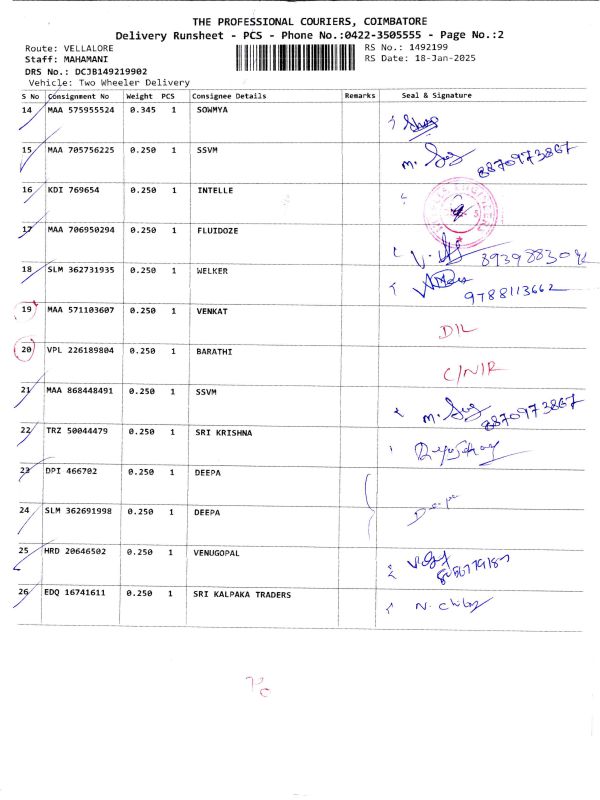 THE PROFESSIONAL COURIERS, COIMBATORE
Delivery Runsheet - PCS - Phone No.:0422-3505555 - Page No.:2
Route: VELLALORE RS No.: 1492199
Staff: MAHAMANI RS Date: 18-Jan-2025
DRS No.: DCJB149219902
Vehicle: Two Wheeler Delivery
S No Consignment No Weight PCS Consignee Details Remarks Seal & Signature
14 MAA 575955524 0.345 1 SOWMYA
15 MAA 705756225 0.250 1 SSVM 8870973867
16 KDI 769654 0.250 1 INTELLE
17 MAA 706950294 0.250 1 FLUIDOZE
18 SLM 362731935 0.250 1 WELKER 9788113662
19 MAA 571103607 0.250 1 VENKAT D/L
20 VPL 226189804 0.250 1 BARATHI C/N/R
21 MAA 868448491 0.250 1 SSVM 8870973867
22 TRZ 50044479 0.250 1 SRI KRISHNA
23 DPI 466702 0.250 1 DEEPA
24 SLM 362691998 0.250 1 DEEPA Deepa
25 HRD 20646502 0.250 1 VENUGOPAL
26 EDQ 16741611 0.250 1 SRI KALPAKA TRADERS